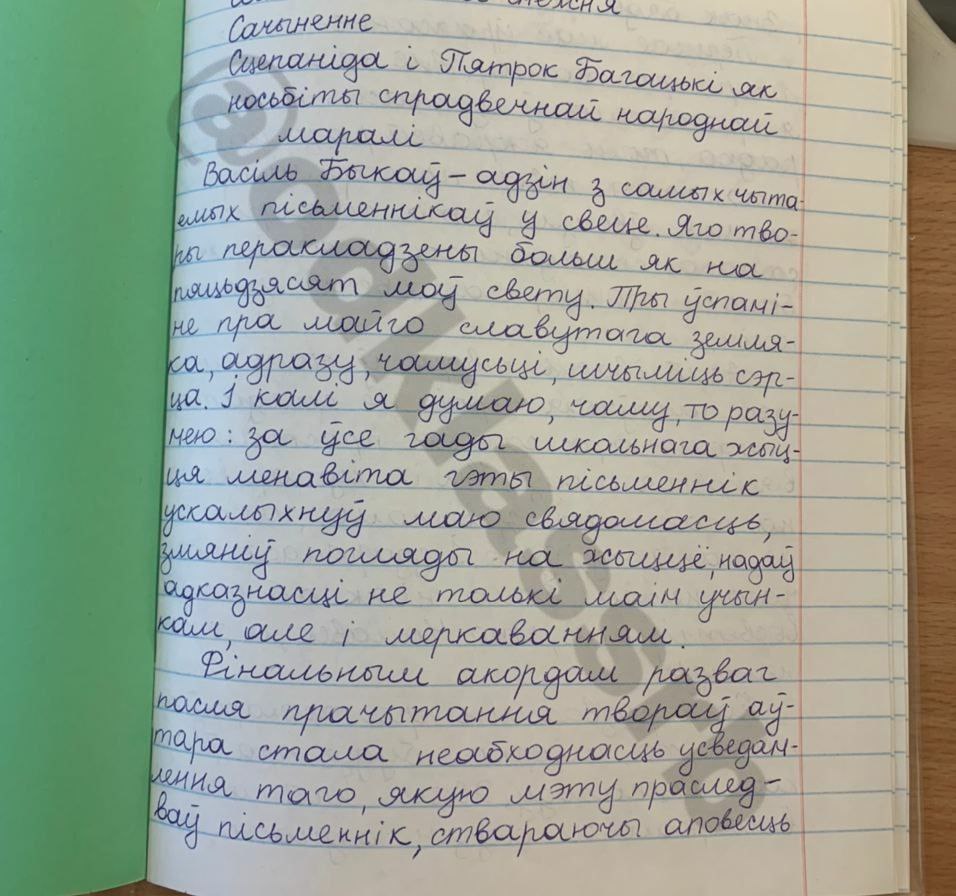 снежня
Сачыненне
Сцепаніда і Пятрок Багацькі як
носьбіты спрадвечнай народнай
маралі
Васіль Быкаў – адзін з самых чыта-
емых пісьменнікаў у свеце. Яго тво-
ры перакладзены больш як на
пяцьдзясят моў свету. Пры ўспамі-
не пра майго славутага земля-
ка, адразу, чамусьці, шчыміць сэр-
ца. І кам я думаю, чаму, то разу-
мею: за ўсе гады школьнага жыц-
ця менавіта гэты пісьменнік
ускалыхнуў маю свядомасць,
змяніў погляды на жыццё, надаў
адказнасці не толькі маім учын-
кам, але і меркаванням
Фінальным акордам разваг
пасля прачытання твораў аў-
тара стала неабходнасць усведам-
лення таго, якую мэту праслед-
ваў пісьменнік, ствараючы аповесць
@odklassib